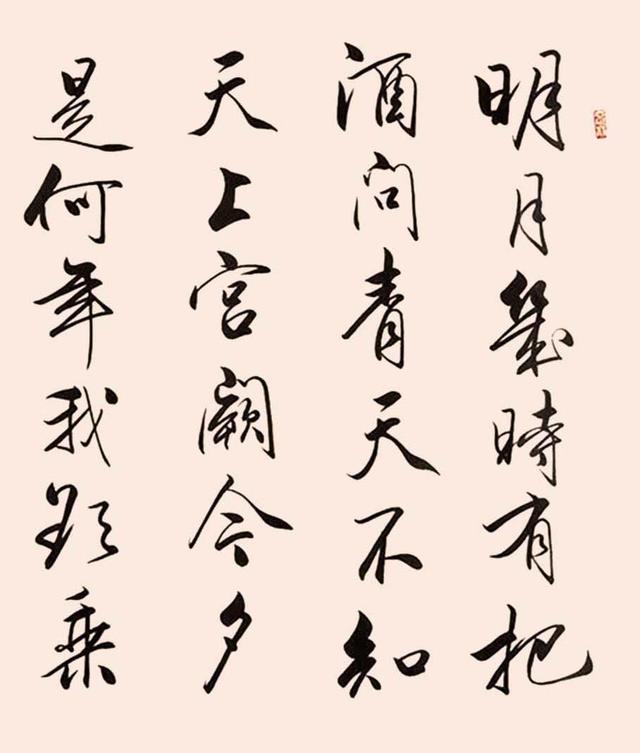 明月幾時有把
酒問青天不知
天上宮闕今夕
是何年我欲乘